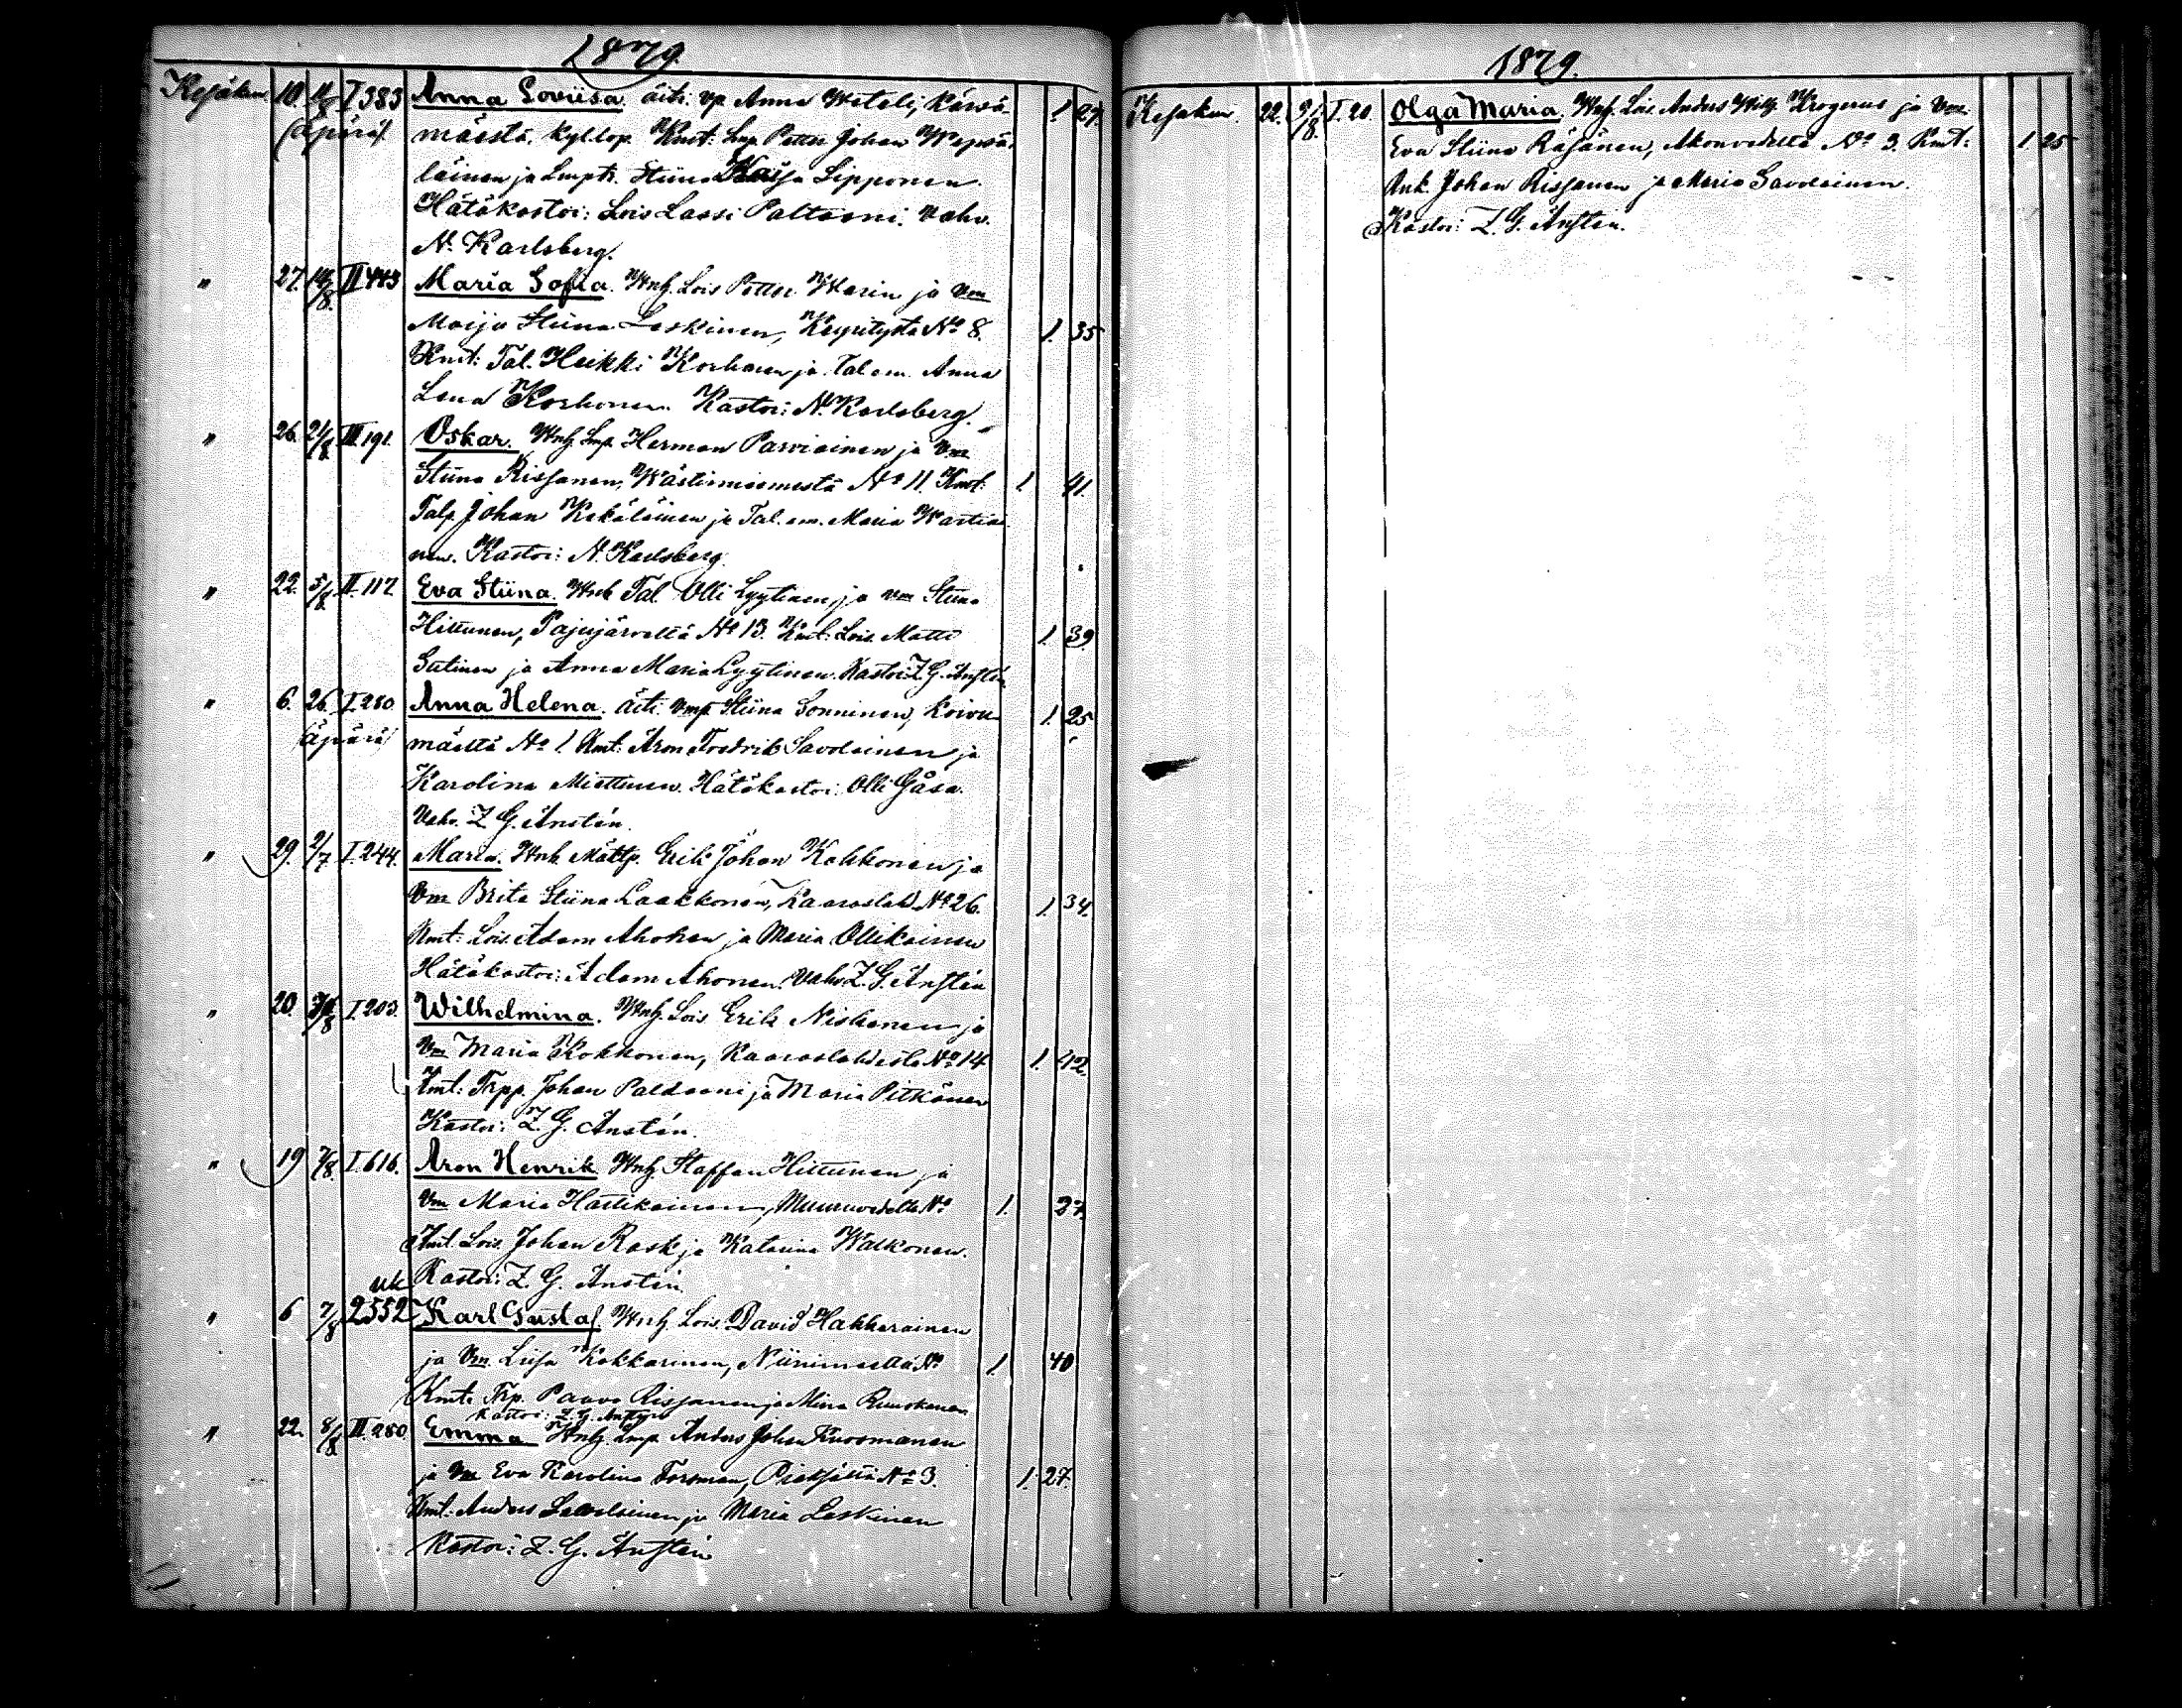 1879.
Kesäkuu 10. 11/8 I 383 Anna Loviisa. äiti: vp. Anna Weteli, Kärsä- 1. 27.
(äpärä) mäestä, Kyl.lop. Kmt: Lmp. Petter Johan Wepsä-
läinen ja Lmptr. Stiina Kaisa Lipponen.
Hätäkastoi: Lois Lassi Paltaani. Vahv.
N. Karlsberg.
" 27. 10/8. II 443 Maria Sofia. Wnh. Lois Petter Warin ja Vm
Maija Stiina Leskinen, Keyritystä No 8. 1. 35
Kmt: Tal. Heikki Korhonen ja Tal.em. Anna
Lena Korhonen. Kastoi: N. Karlsberg.
" 26. 24/8 III 191. Oskar. Wnh. Lmp. Herman Parviainen ja Vm
Stiina Rissanen, Wästinniemestä No 11. Kmt: 1. 41.
Talp. Johan Kekäläinen ja Tal.em. Maria Wartiai-
nen. Kastoi: N. Karlsberg.
" 22. 5/8 II. 117 Eva Stiina. Wnh Tal Olli Lyytinen ja vm Stiina
Hittunen, Pajujärveltä No 13. Kmt: Lois. Matti 1. 39.
Sutinen ja Anna Maria Lyytinen. Kastoi: Z. G. Anstén
" 6. 26. I. 280 Anna Helena. äiti: Vmp. Stiina Sonninen, Koivu- 1. 25
(äpärä) mäeltä No 1 Kmt: Aron Fredrik Savolainen ja
Karolina Miettinen. Hätäkastoi: Olli Gåsa.
Vahv. Z. G. Anstén.
" 29. 2/7 I. 244. Maria. Wnh Mättp. Erik Johan Kokkonen ja
Vm Brita Stiina Laakkonen, Kaaraslah. No 26. 1. 34.
Kmt: Lois. Adam Ahonen ja Maria Ollikainen
Hätäkastoi: Adam Ahonen. Vahv Z. G. Anstén
" 20. /8 I. 203. Wilhelmina. Wnh. Lois Erik Niskanen ja
Vm Maria Kokkonen, Kaaraslahdesta No 14 1. 42.
Kmt: Trpp. Johan Paldaani ja Maria Pitkänen
Kastoi: Z. G. Anstén.
" 19 7/8. I 616. Aron Henrik Wnh. Staffan Hittunen ja
Vm Maria Hartikainen, Muuruvedeltä No 1. 27.
Kmt. Lois. Johan Rask ja Katarina Walkonen.
Kastoi: Z. G. Anstén.
" 6 7/8 uk 2552 Karl Gustaf. Wnh. Lois. David Hakkarainen
ja Vm. Liisa Kokkarinen, Niinimäeltä No 1. 40
Kmt. Trp. Paavo Rissanen ja Miina Ruuskanen
Kastoi: Z. G. Anstén
" 22. 8/8 III. 280 Emma Wnh. Lmp. Anders Johan Kuosmanen
ja Vm Eva Karolina Forsman, Pieksältä No 3. 1. 27.
Kmt: Anders Savolainen ja Maria Leskinen
Kastoi: Z. G. Anstén
1879.
Kesäkuu. 22. 9/8 I. 20. Olga Maria. Wnh. Lois. Anders Wilh. Krogerus ja Vm
Eva Stiina Räsänen, Akonvedeltä No 3. Kmt: 1 25
Ank. Johan Rissanen ja Maria Savolainen.
Kastoi: Z. G. Anstén.